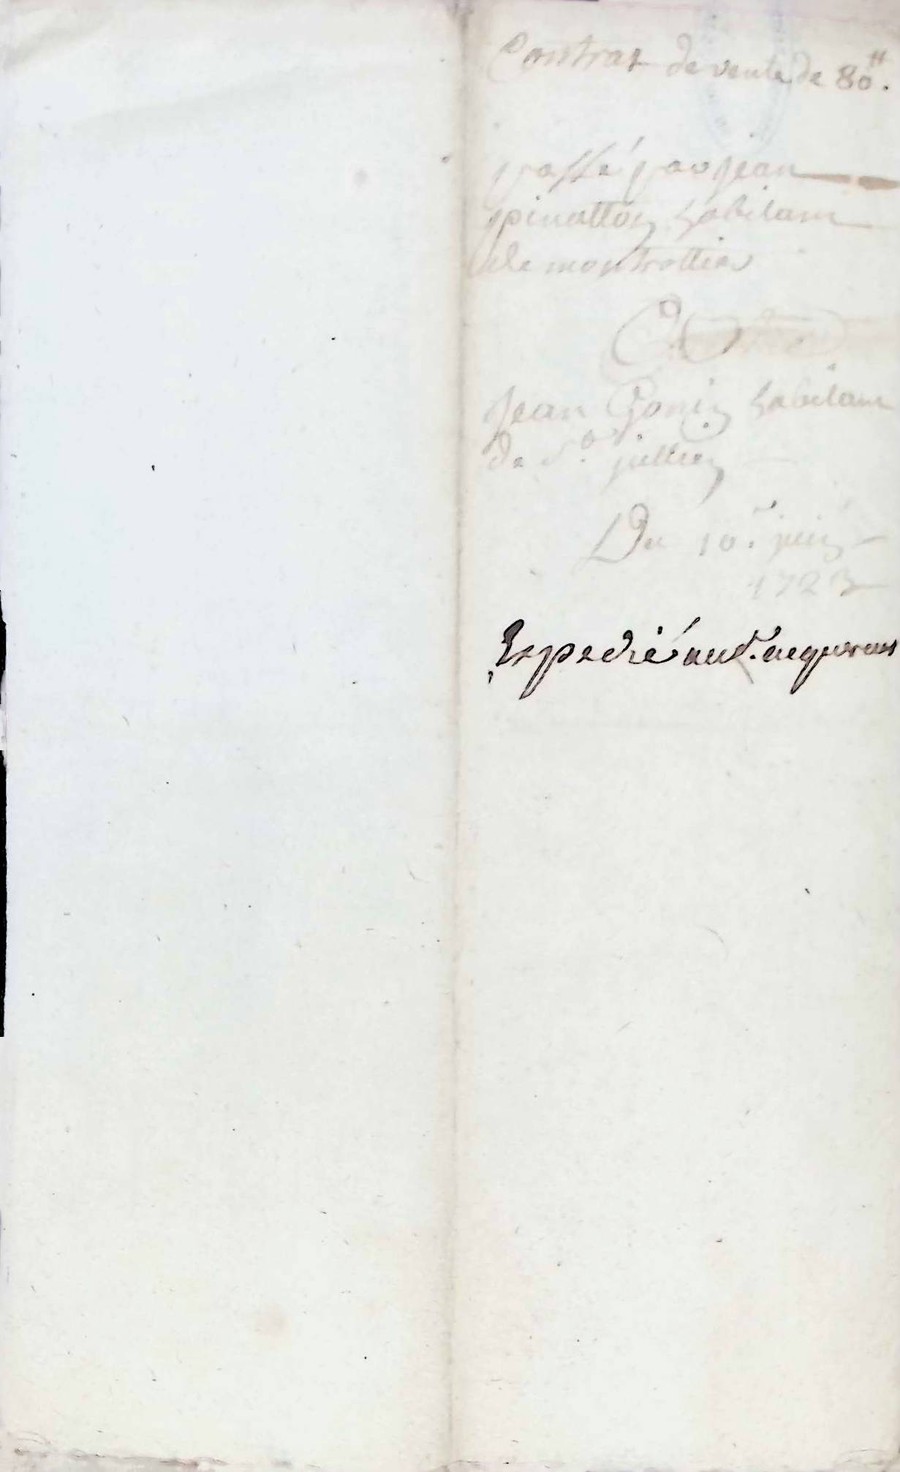 Contrat de vente de 80tt.
passé par jean
pinatton habitant
de montrottier
A
Jean Gonin habitant
de St. jullien
Du 10e. juin
1723
Expedié aud. acquereur